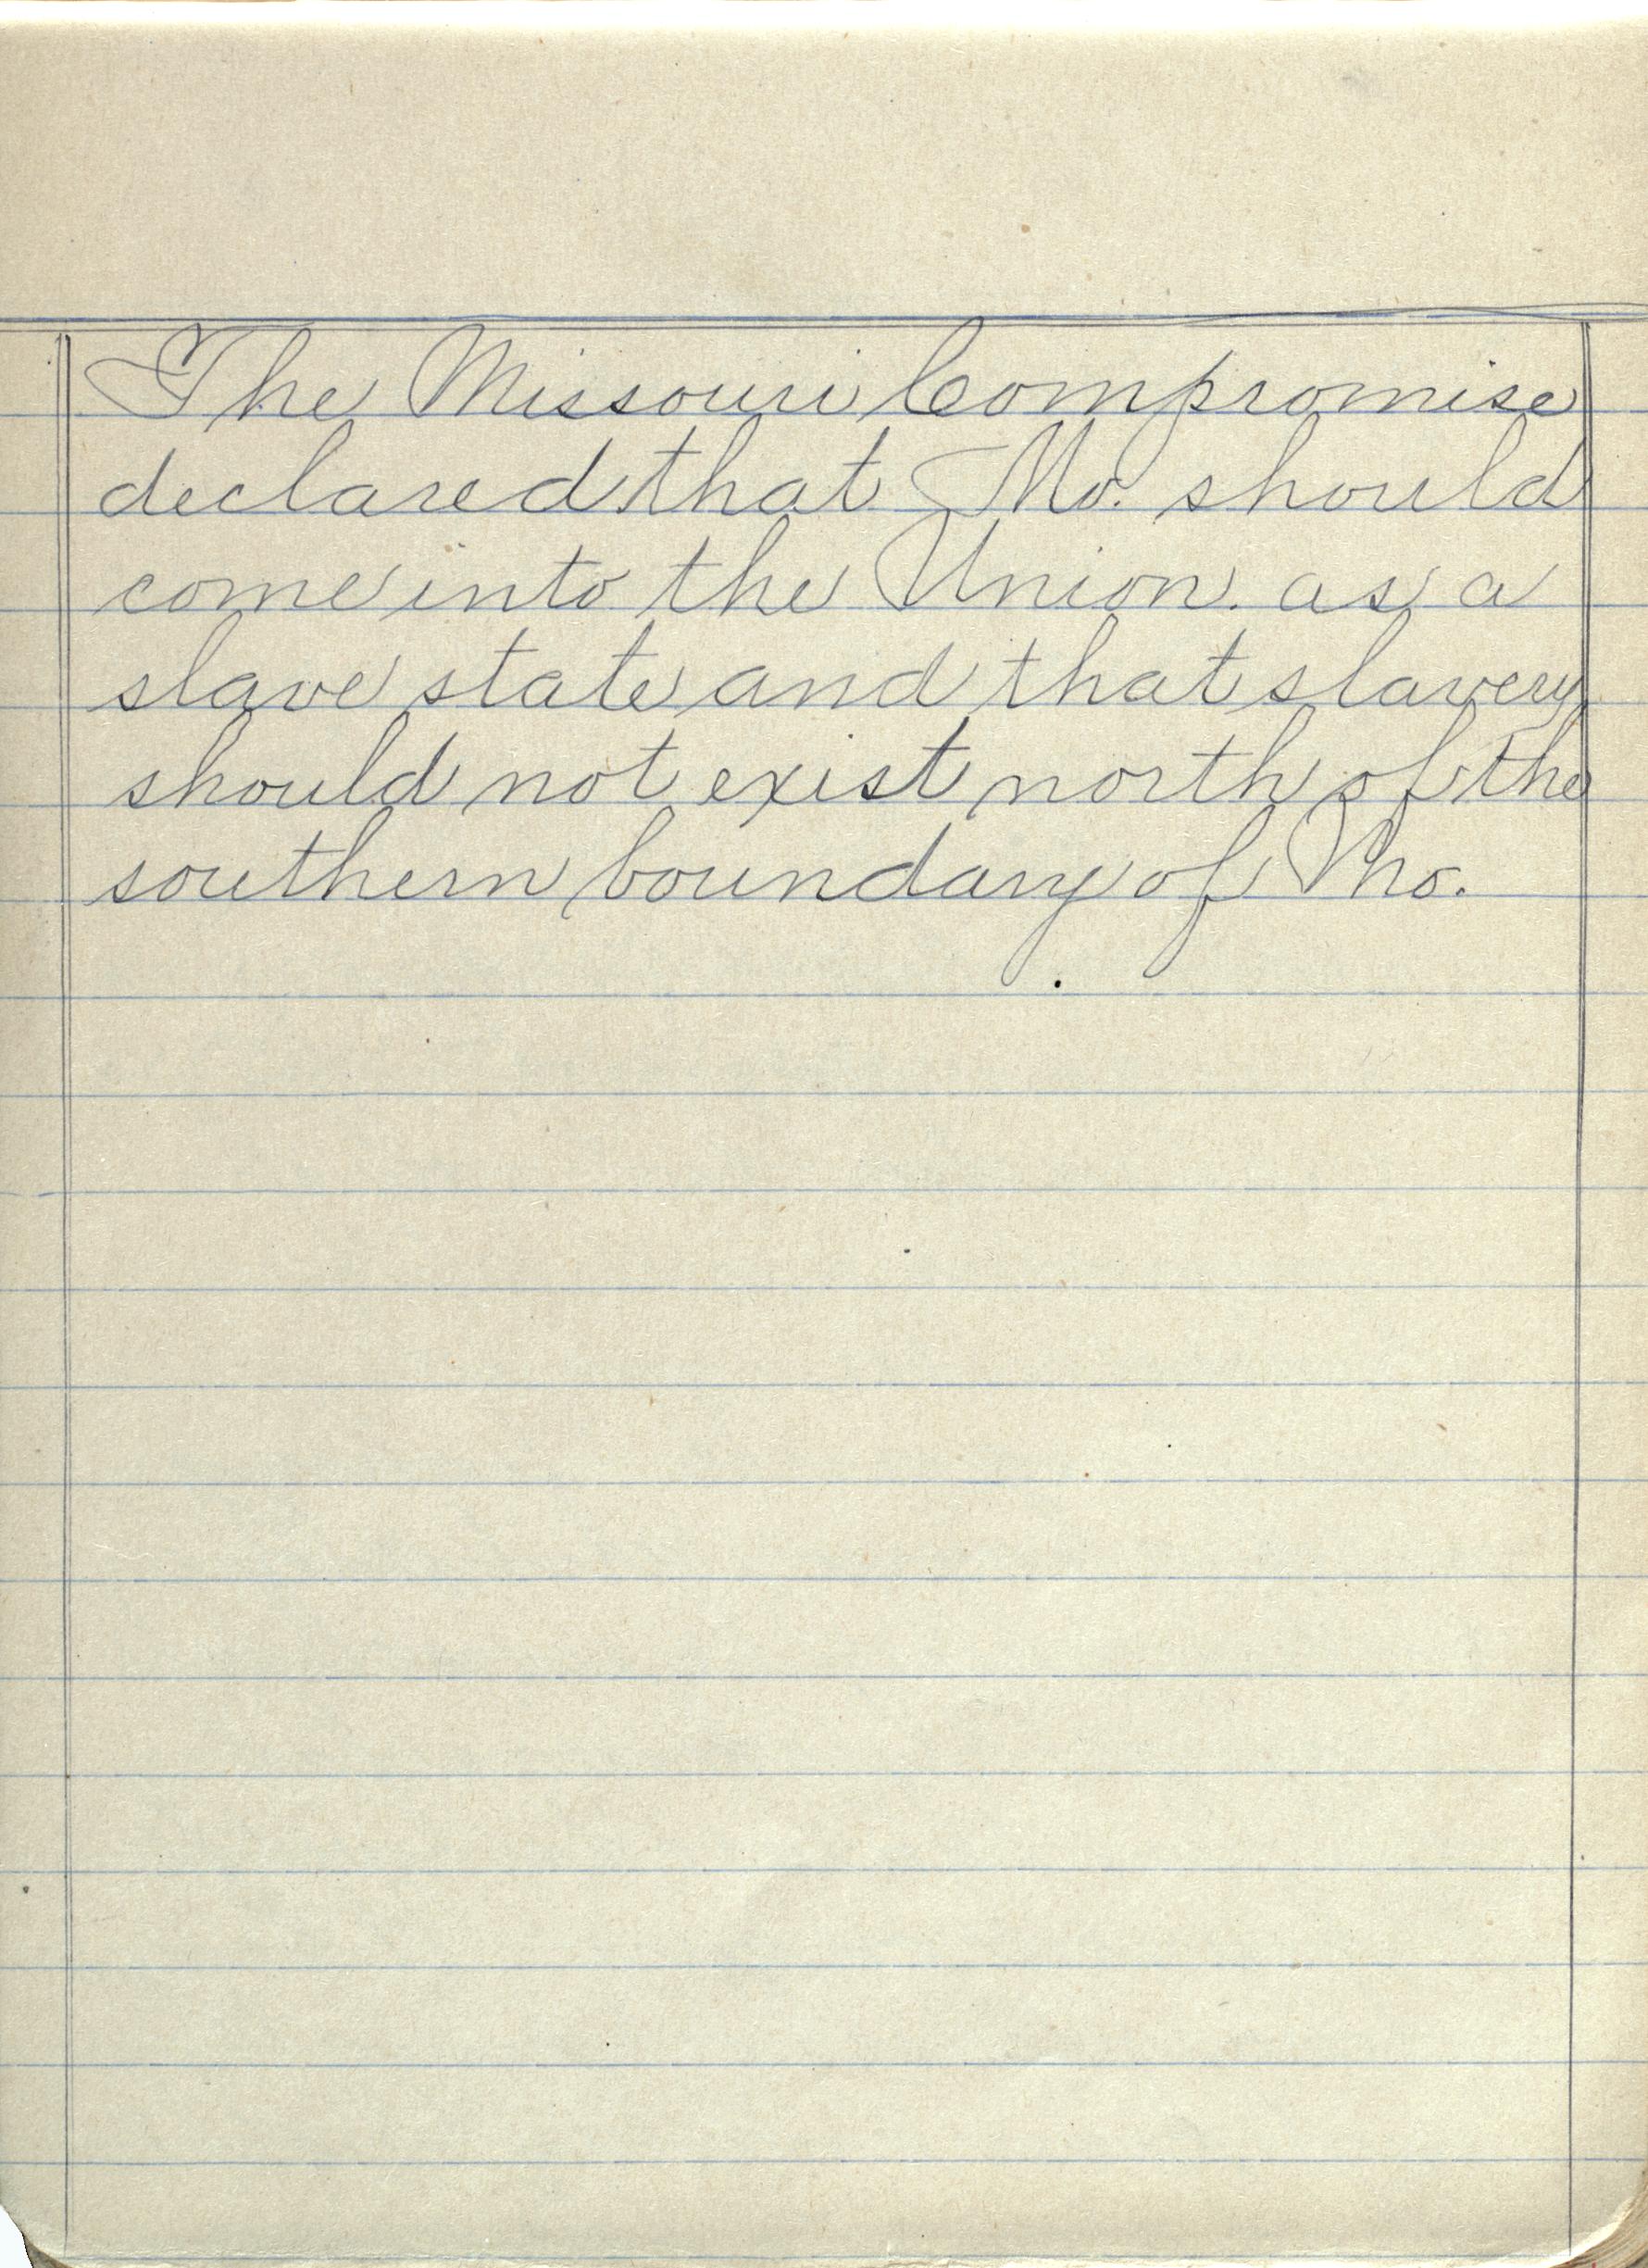 The Missouri Compromise
declared that Mo. should
come into the Union. as a
slave state and that slavery
should not exist north of the
southern boundary of Mo.